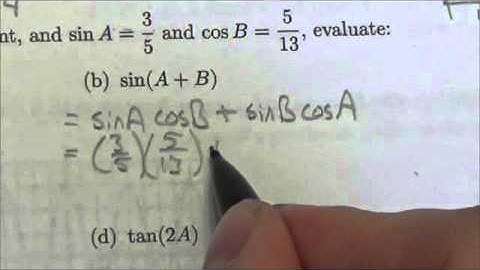 nt, and sin A = 3/5 and cos B = 5/13, evaluate:
(b) sin(A + B)
= sinA cosB + sinB cosA
= (3/5)(5/13)
(d) tan(2A)